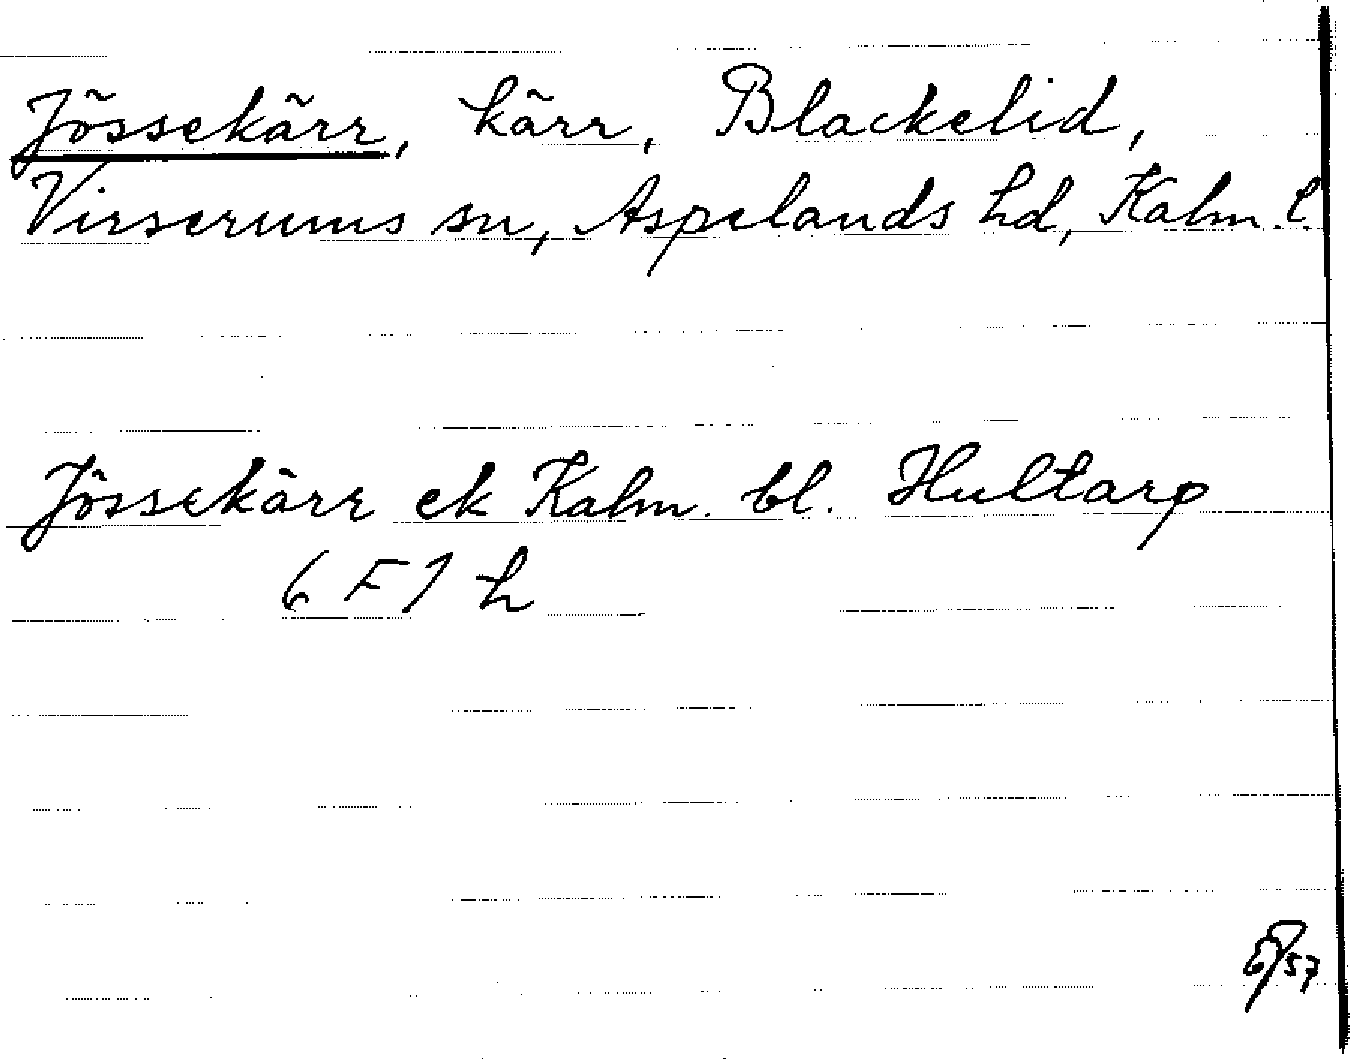 Jössekärr, kärr, Blackelid,
Virserums sn, Aspelands hd, Kalm. l.
Jössekärr ek Kalm. bl. Hultarp
6 F 1 h